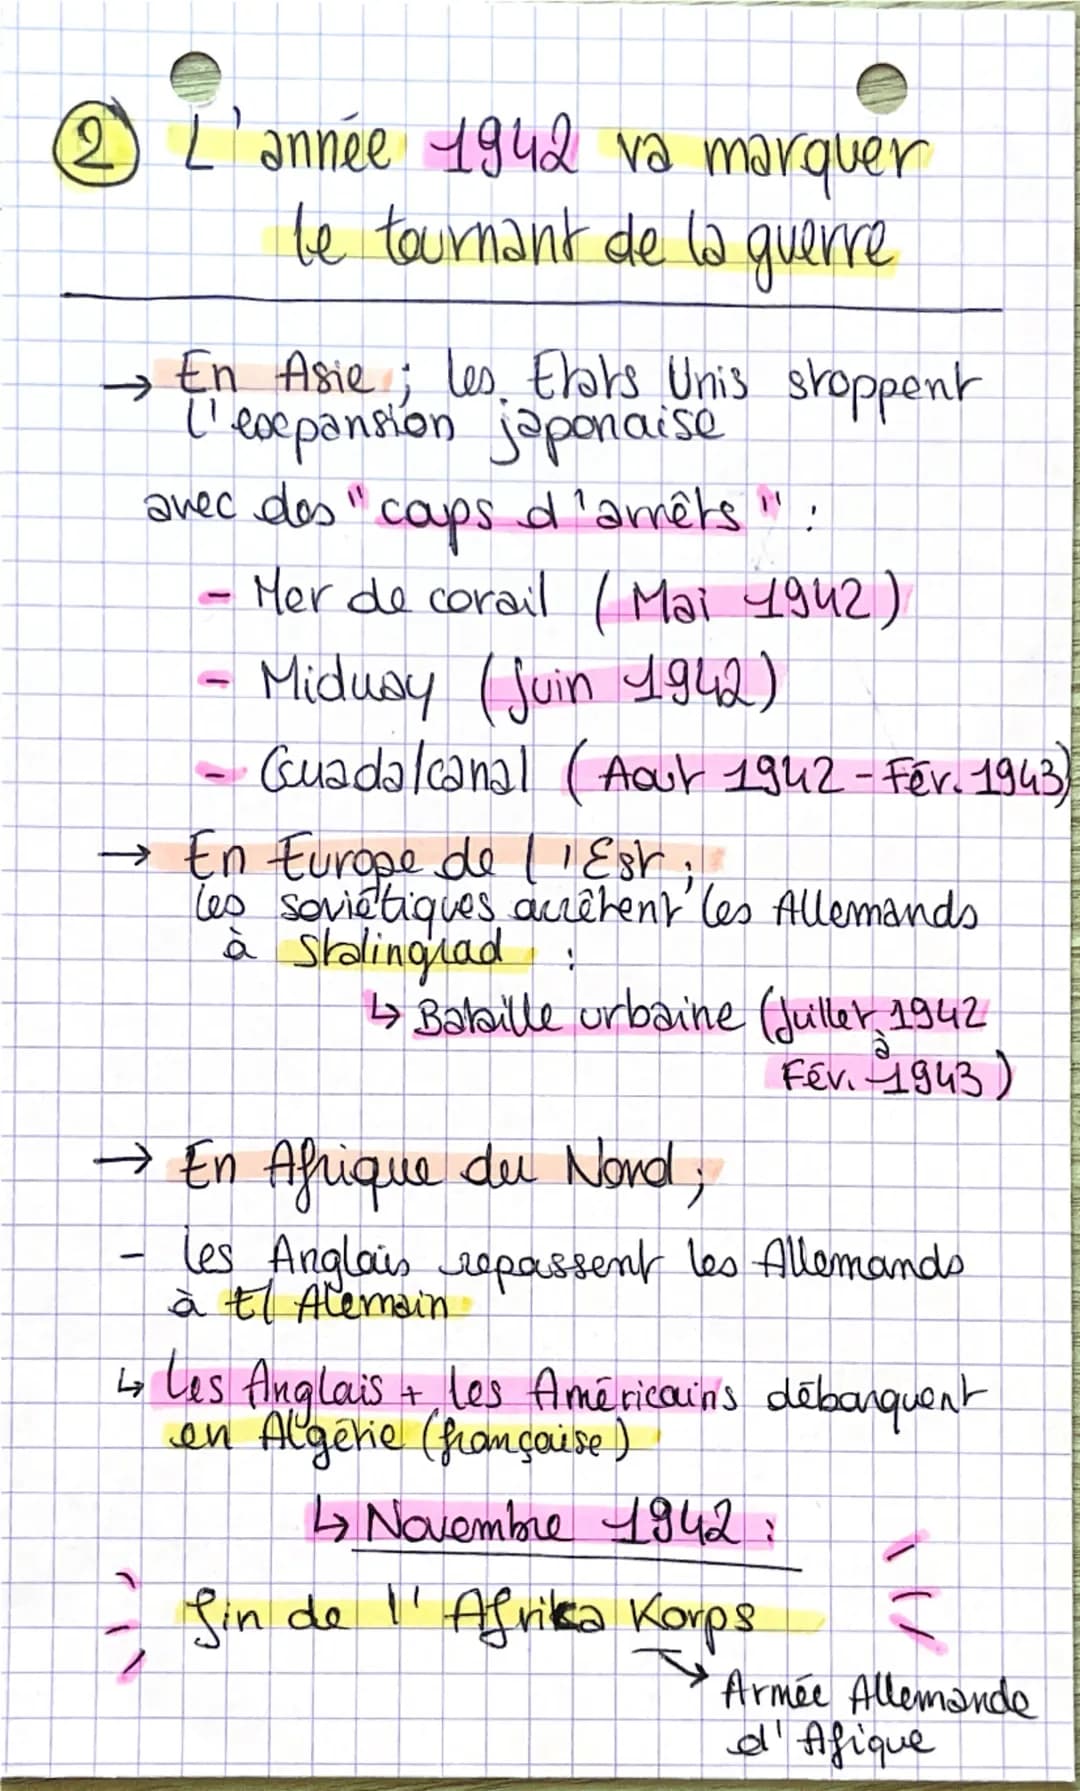 2 L'année 1942 va marquer
le tournant de la guerre
→ En Asie ; les Etats Unis stoppent
l'expansion japonaise
avec des "caps d'arrêts" :
- Mer de corail (Mai 1942)
- Midway (Juin 1942)
- Guadalcanal (Aout 1942 - Fév. 1943)
→ En Europe de l'Est ;
les soviétiques arrêtent les Allemands
à Stalingrad :
↳ Bataille urbaine (Juillet 1942
à
Fév. 1943)
→ En Afrique du Nord ;
- les Anglais repassent les Allemands
à El Alemain
↳ Les Anglais + les Américains débarquent
en Algérie (française)
↳ Novembre 1942 :
fin de l'Afrika Korps
→ Armée Allemande
d'Afique